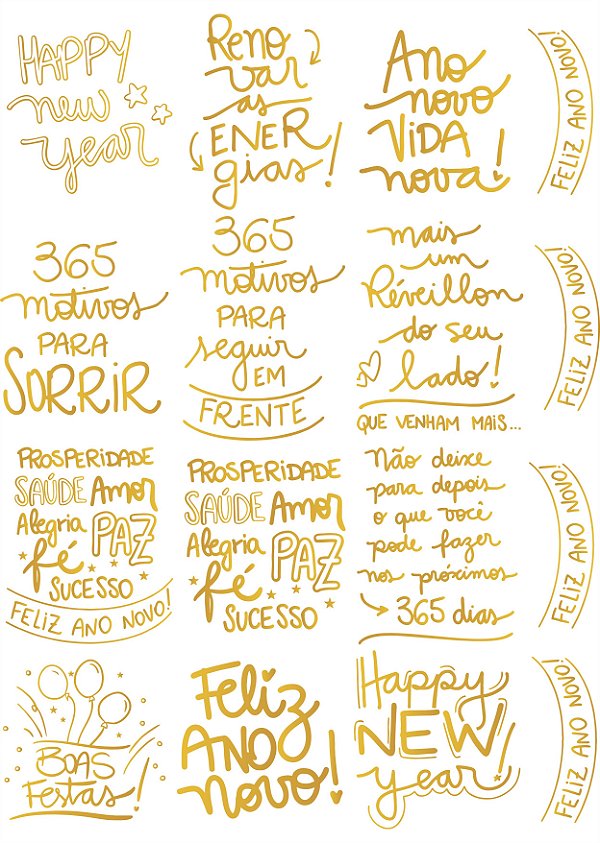 HAPPY
new
year
Reno
var
as
ENER
gias!
Ano
novo
VIDA
nova!
FELIZ ANO NOVO!
365
motivos
PARA
SORRIR
365
motivos
PARA
seguir
EM
FRENTE
mais
um
Réveillon
do seu
lado!
QUE VENHAM MAIS...
FELIZ ANO NOVO!
PROSPERIDADE
SAÚDE Amor
Alegria PAZ
fé
SUCESSO
FELIZ ANO NOVO!
PROSPERIDADE
SAÚDE Amor
Alegria PAZ
fé
SUCESSO
Não deixe
para depois
o que você
pode fazer
nos próximos
365 dias
FELIZ ANO NOVO!
BOAS
Festas!
Feliz
ANO
novo!
Happy
NEW
year!
FELIZ ANO NOVO!